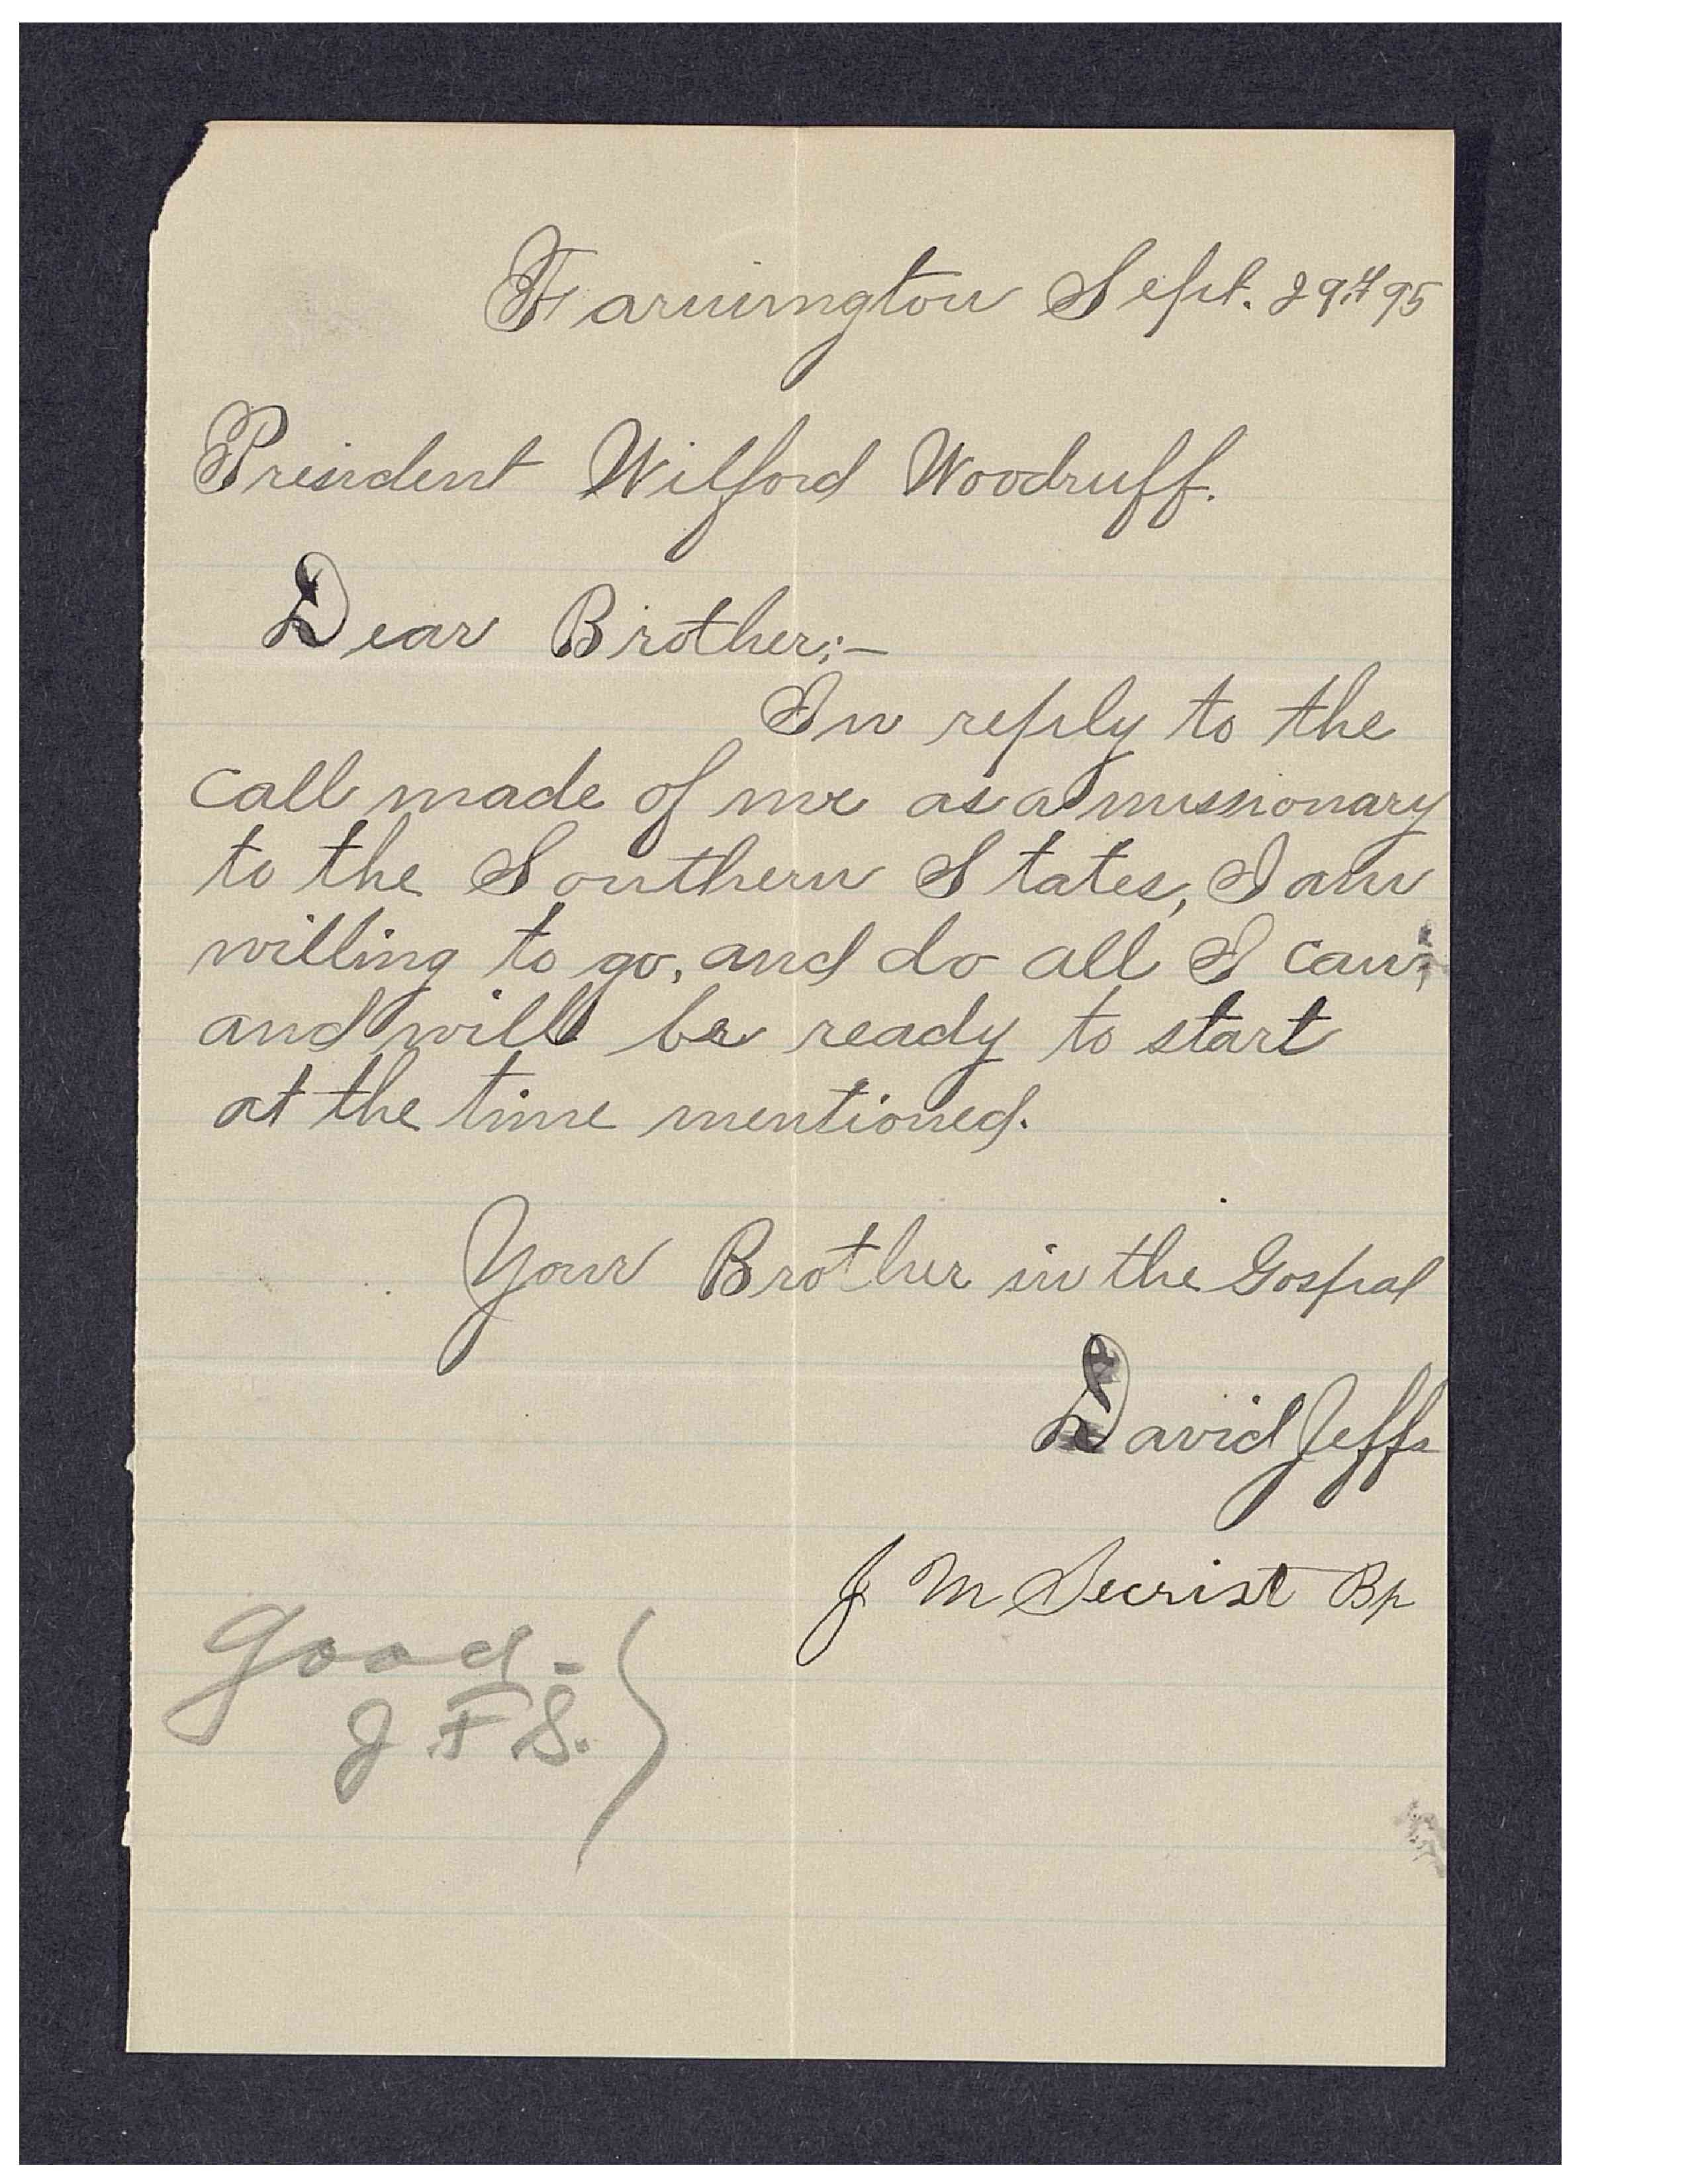 Farmington Sept. 29th 95
President Wilford Woodruff.
Dear Brother;—
In reply to the
call made of me as a missionary
to the Southern States, I am
willing to go, and do all I can;
and will be ready to start
at the time mentioned.
Your Brother in the Gospal
David Jeffs
J M Secrist Bp
Good-
J F S.